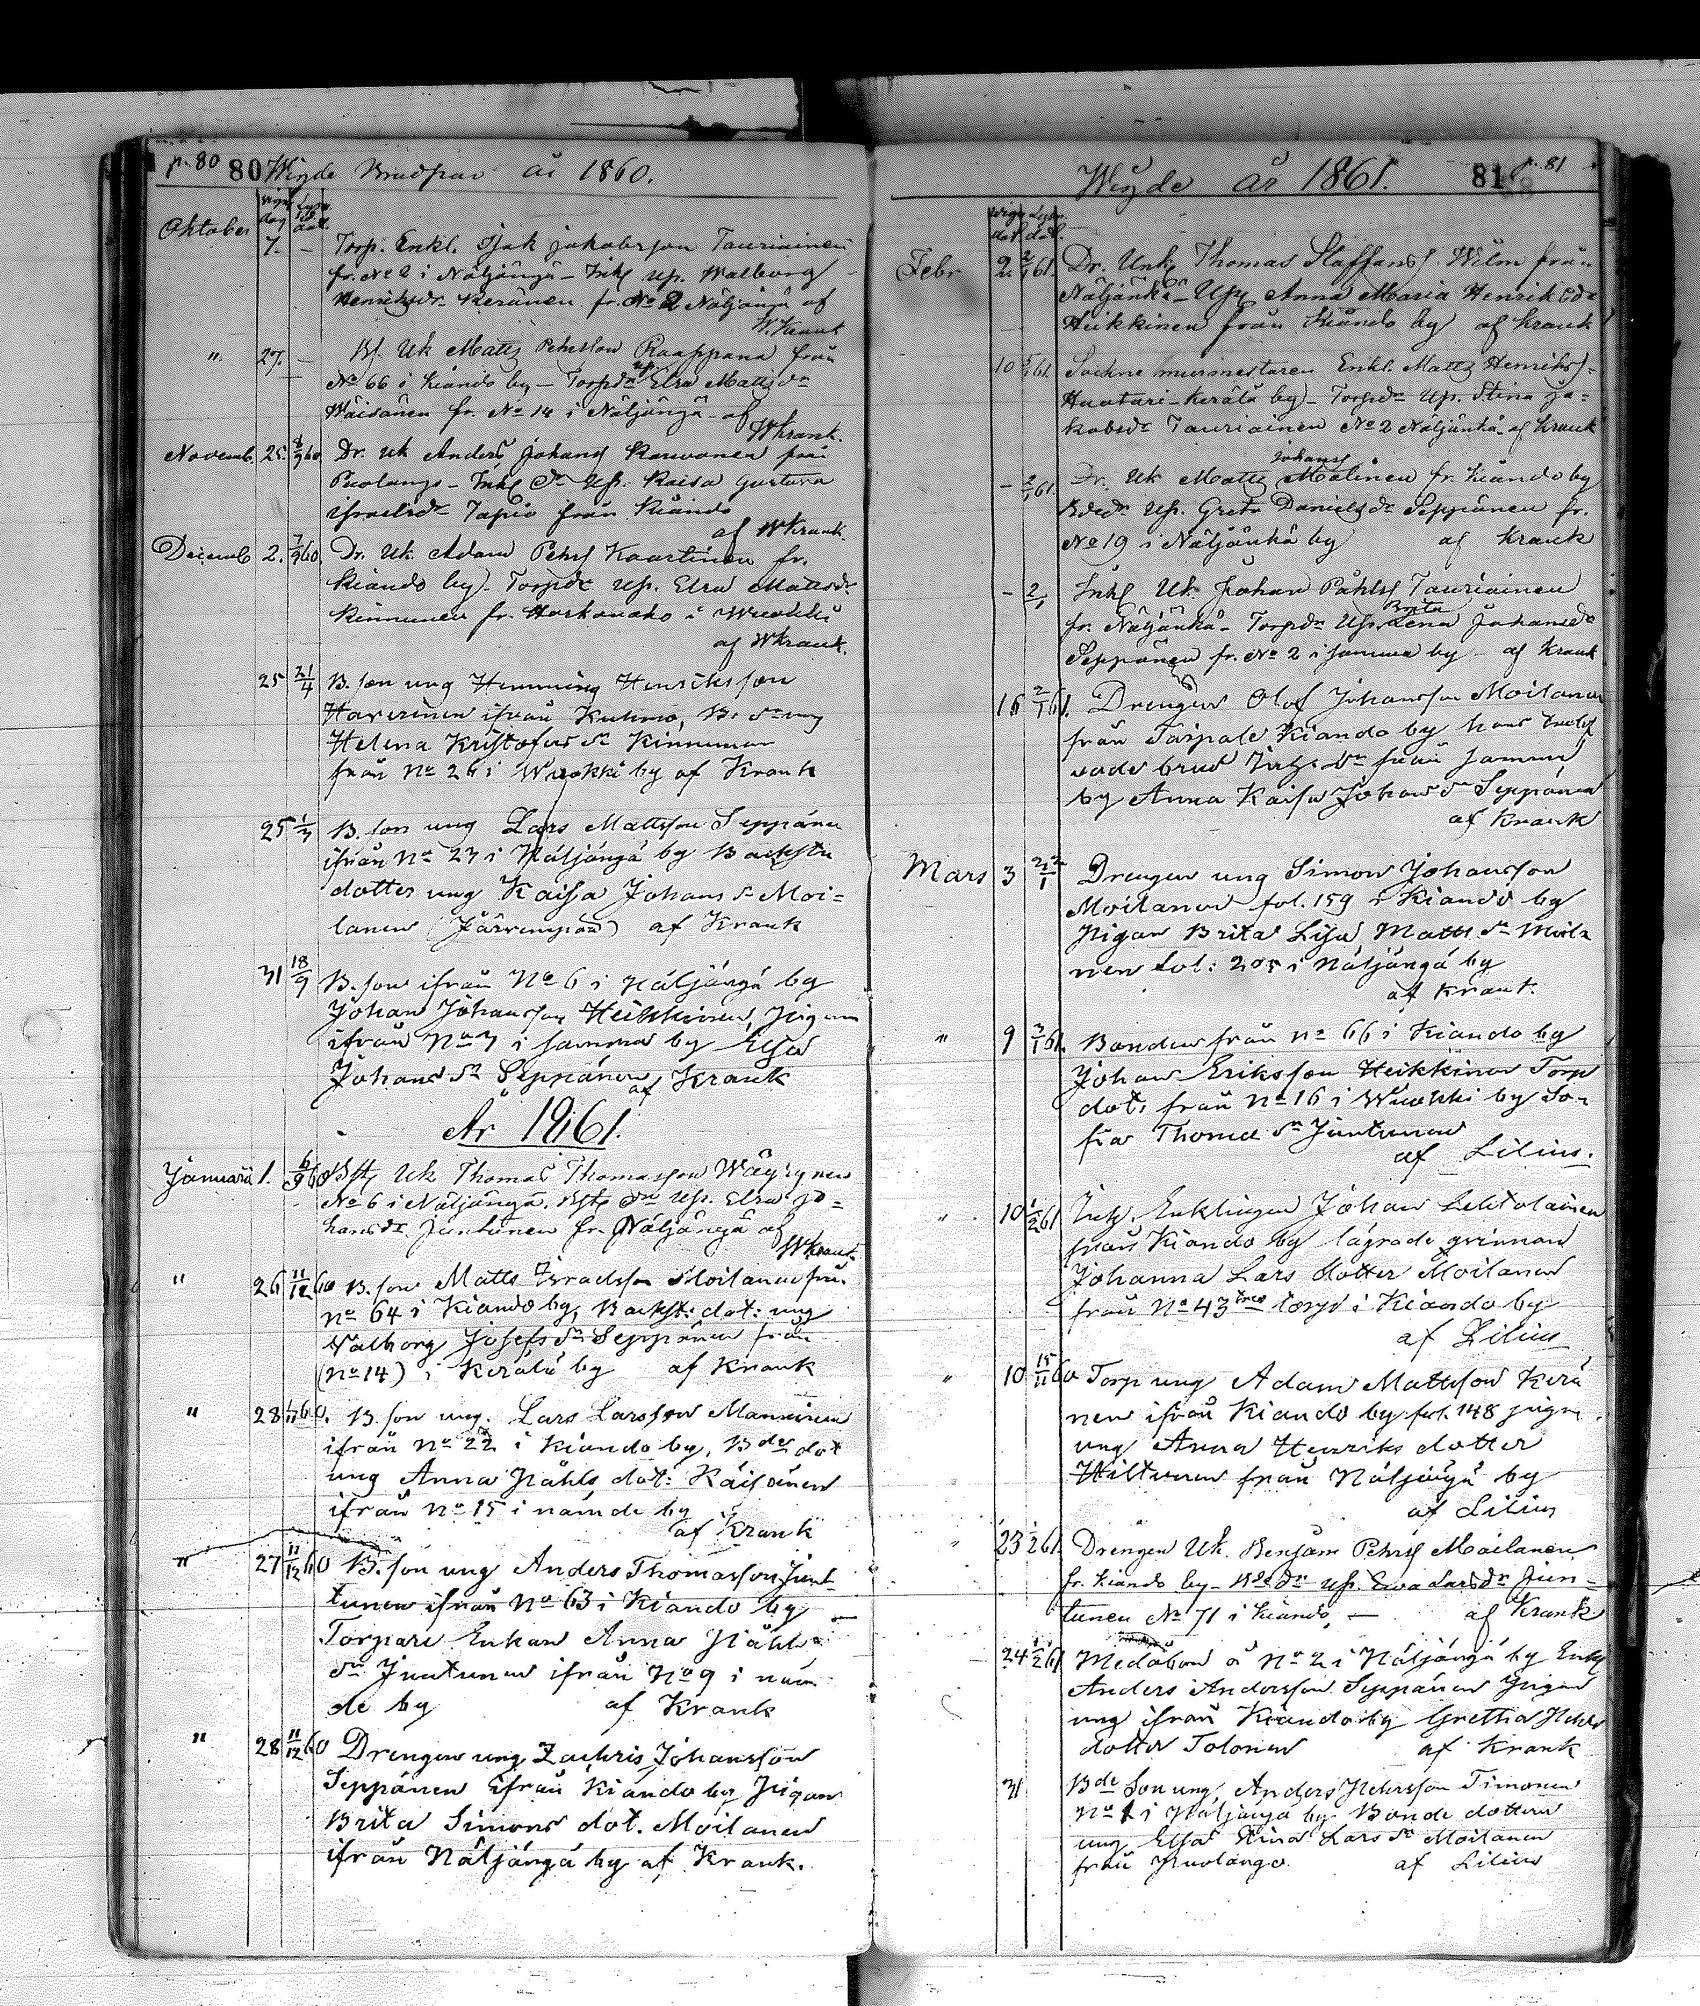 p. 80 80 Wigde Brudpar år 1860.
Oktober 7. – Torp. Enkl. Isak Jakobsson Tauriainen
fr. No 2 i Näljängä – Inh. Up. Walborg
Henriksdr. Keränen fr. No 2 Näljängä af
W. Krank
" 27. – Bs. Uk Matts Pehrsson Raappana från
No 66 i Kiando by – Torpdr up. Elsa Mattsdr
Wäisänen fr. No 14 i Näljängä af
WKrank.
Novemb. 25. 8/9 60 Dr. Uk Anders Johans Karvonen från
Puolango – Inh. dr Up. Kaisa Gustava
Israelsdr Tapio från Kiando
af WKrank.
Decemb 2. 7/9 60. Dr. Uk Adam Pehrs Kaartinen fr.
Kiando by – Torpdr Up. Elsa Mattsdr
Kinnunen fr. Horkanaho i Wuokki
af WKrank.
25 21/4 B. son ung Hemming Henriksson
Haverinen ifrån Kuhmo, B. dr ung
Helena Kristofers dr Kinnunen
från No 26 i Wuokki by af Krank
25 1/7 B. son ung Lars Mattsson Seppänen
ifrån No 27 i Näljängä by Backstu
dotter ung Kaisa Johans dr Moi=
lanen (Järvenpää) af Krank
31 18/9 B. son ifrån No 6 i Näljängä by
Johan Johansson Heikkinen, Pigan
ifrån No 7 i samma by Elsa
Johans dr Seppänen af Krank
År 1861.
Januari 1. 6/9 60 Bst Uk Thomas Thomasson Wäyrynen
No 6 i Näljängä. Bst dr Up. Elsa Jo=
hansdr Juntunen fr. Näljängä af
WKrank.
" 26 11/12 60 B. son Matts Israelsson Moilanen från
No 64 i Kiando by, Backst: dot: ung
Valborg Josefs dr Seppänen från
(No 14) i Kerälä by af Krank
" 28 60. B. son ung. Lars Larsson Manninen
ifrån No 22 i Kiando by, Bde dot
ung Anna Påhls dot: Räisänen
ifrån No 15 i nämde by
af Krank
" 27 11/12 60 B. son ung Anders Thomasson Junt
tunen ifrån No 63 i Kiando by
Torpare Enkan Anna Påhls
dr Juntunen ifrån No 9 i näm
de by af Krank
" 28 11/12 60 Drengen ung Zachris Johansson
Seppänen ifrån Kiando by Pigan
Brita Simons dot. Moilanen
ifrån Näljängä by af Krank.
Wigde år 1861. 81 p. 81
Febr 2. 2/1 61. Dr. Unk. Thomas Staffans Wilm från
Näljänkä – Up. Anna Maria Henriksdr
Heikkinen från Kiando by af Krank
10 61. Sockne murmestaren Enkl. Matts Henriks
Huotari – Kerälä by – Torpdr Up. Stina Ja=
kobsdr Tauriainen No 2 Näljänkä af Krank
– 2/1 61. Dr. Uk Matts Johans Malinen fr. Kiando by
Bdedr Up. Greta Danielsdr Seppänen fr.
No 19 i Näljänkä by af Krank
– 2/1 Inh. Uk. Johan Påhls Tauriainen
fr. Näljänkä – Torpdr Up. Brita Lena Johansdr
Seppänen fr. No 2 i samma by af Krank
16 2/1 61. Drengen Olof Johansson Moilanen
från Tarpale Kiando by hans
vade brud Inh. dr från samma
by Anna Kaisa Johans dr Seppänen
af Krank
Mars 3 22/1 Drengen ung Simon Johansson
Moilanen fol. 159 i Kiando by
Pigan Brita Lisa Matts dr Moila
nen fol: 205 i Näljängä by
af Krank.
" 9 2/1 61. Bonden från No 66 i Kiando by
Johan Eriksson Heikkinen Torp
dot: från No 16 i Wuokki by So=
fia Thomas dr Juntunen
af Lilius.
" 10 1/2 61 Inh. Enklingen Johan Lehtolainen
från Kiando by lägrade qvinnan
Johanna Lars dotter Moilanen
från No 43 torp i Kiando by
af Lilius
" 10 15/11 60 Torp ung Adam Mattsson Kerä
nen ifrån Kiando by fol. 148 pigan
ung Anna Henriks dotter
Hiltunen från Näljängä by
af Lilius
" 23 1/2 61. Drengen Uk. Benjam Pehrs Moilanen
fr. Kiando by – Bde dr Up. Ewa Larsdr Jun=
tunen No 71 i Kiando, – af Krank
24 1/2 61 Medåbon å No 2 i Näljängä by Enkl
Anders Andersson Seppänen Pigan
ung ifrån Kiando by Gretha Pehrs
dotter Tolonen af Krank
31 Bde Son ung, Anders Pehrsson Timonen
No 1 i Näljängä by Bonde dottern
ung Elsa Stina Lars dr Moilanen
från Puolango. af Lilius